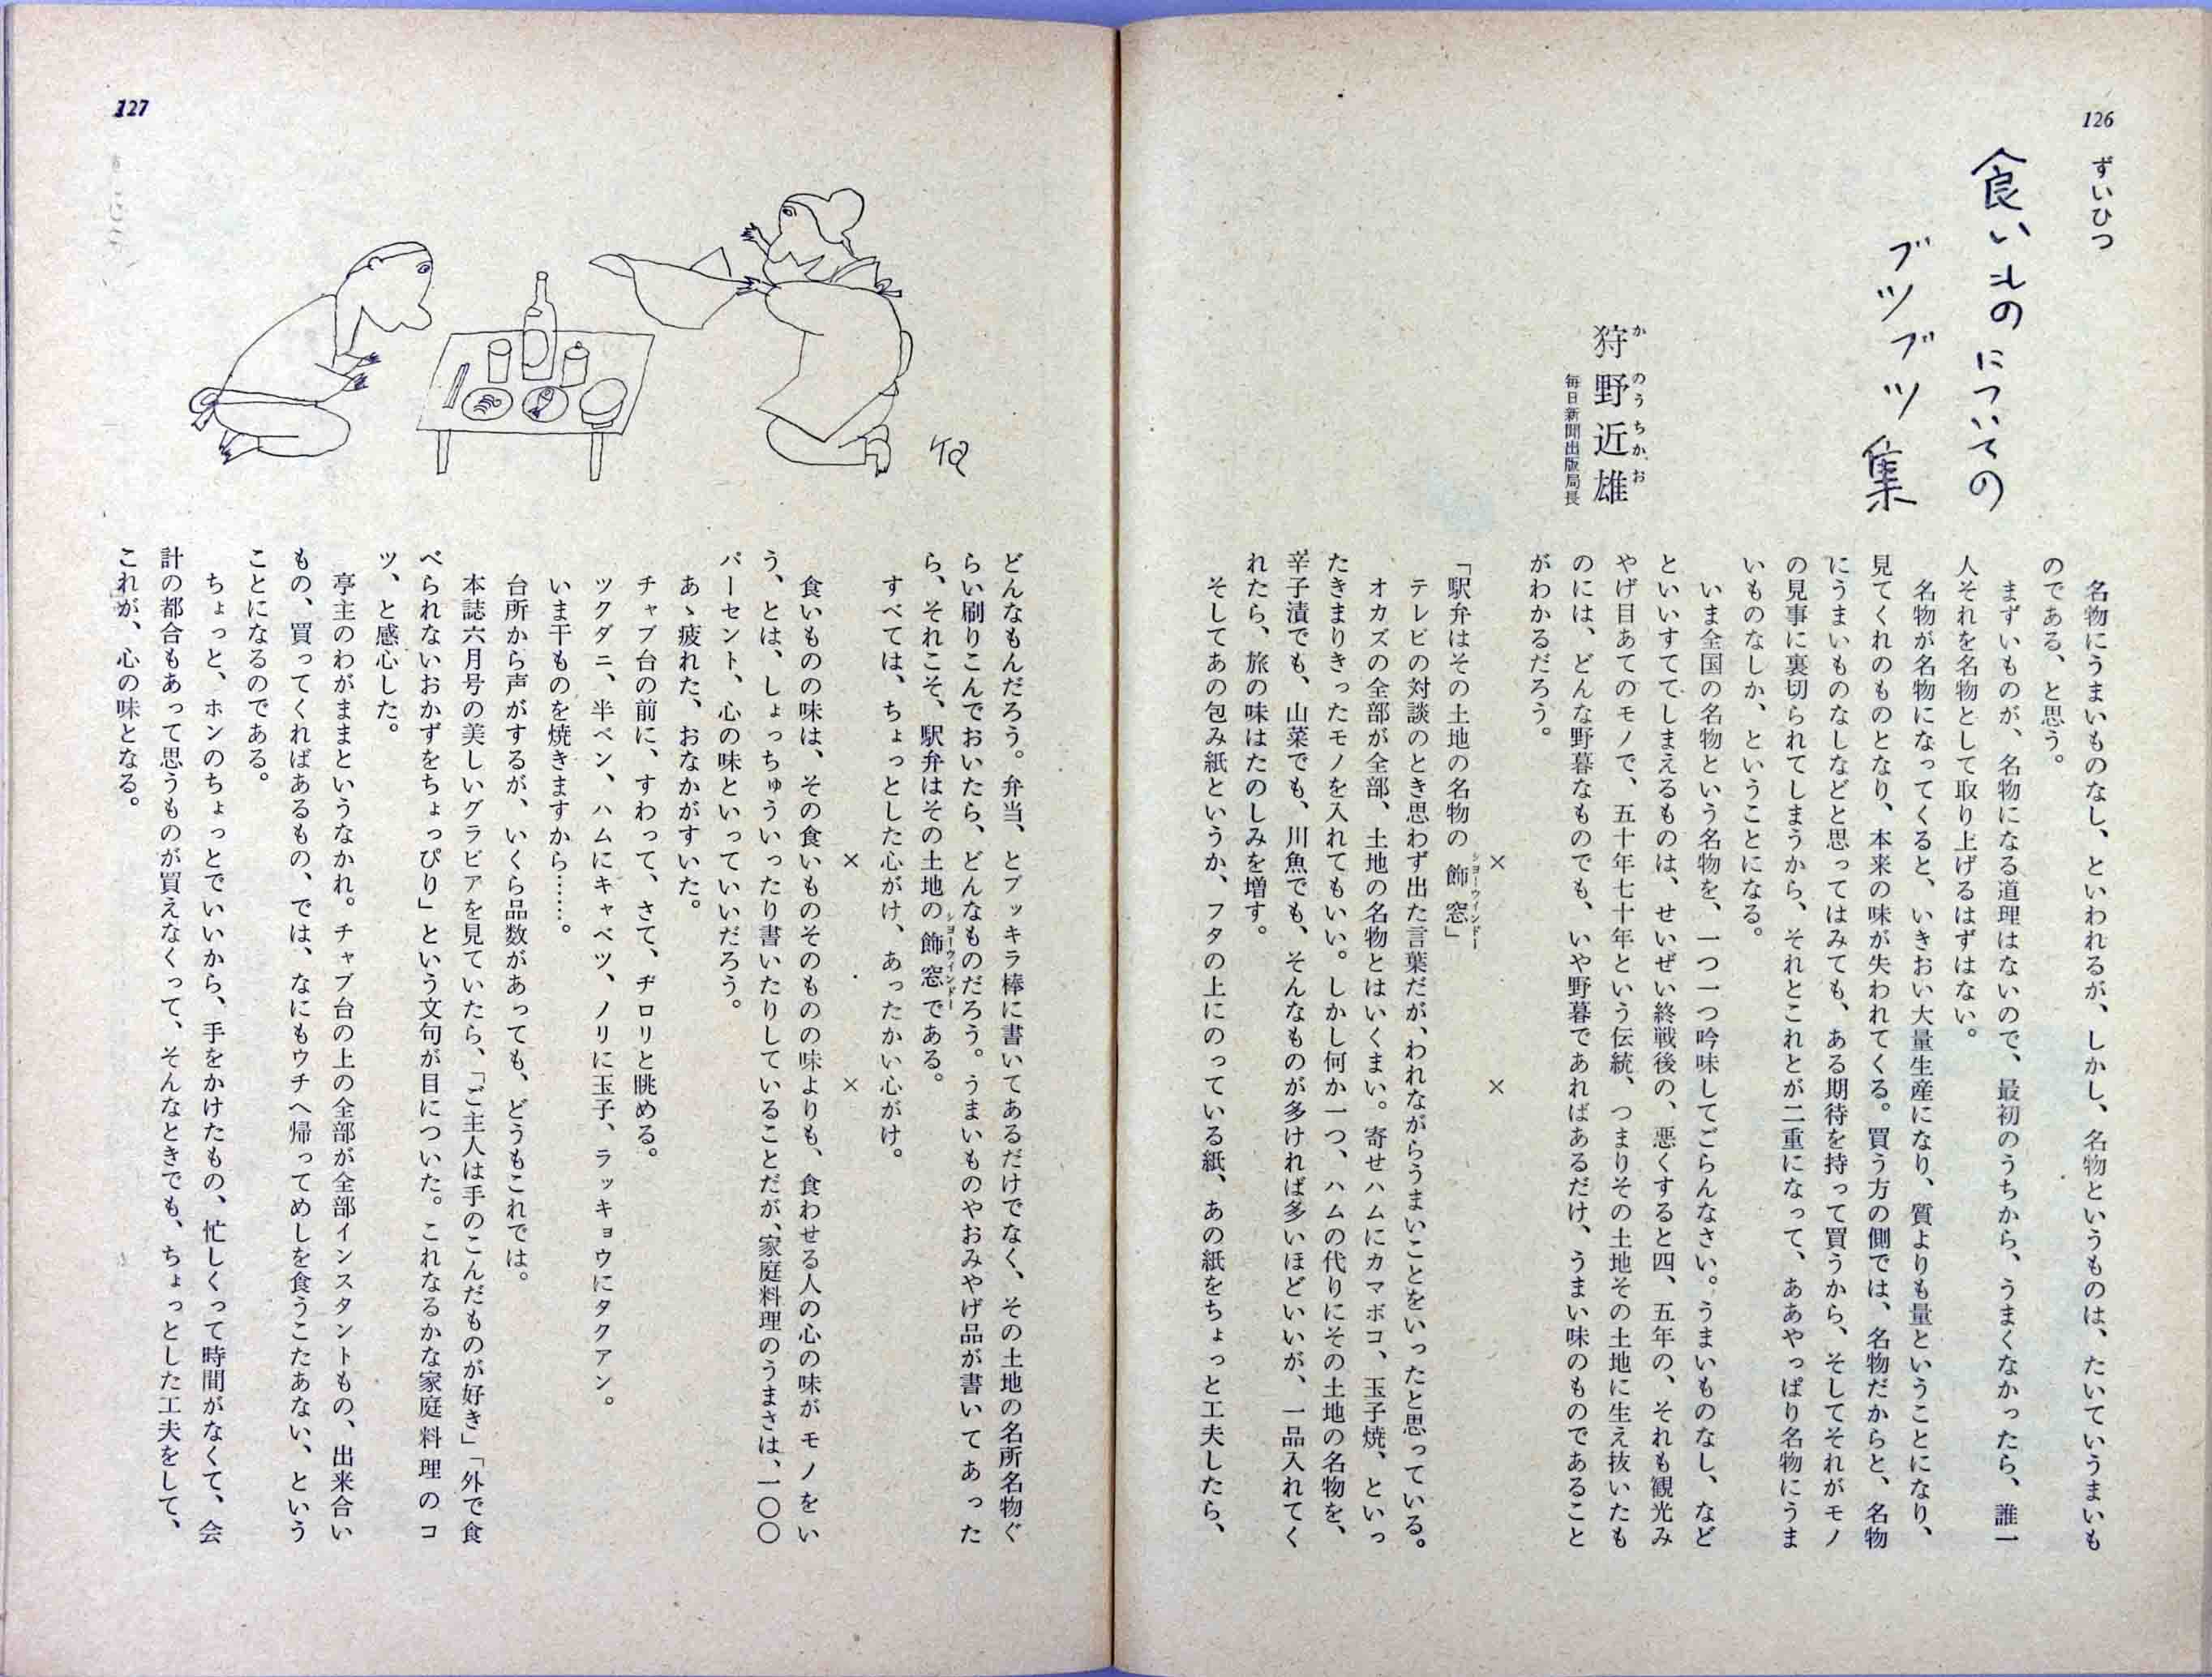 126
ずいひつ
食いものについての
ブツブツ集
狩野近雄
かのうちかお
毎日新聞出版局長
名物にうまいものなし、といわれるが、しかし、名物というものは、たいていうまいも
のである、と思う。
まずいものが、名物になる道理はないので、最初のうちから、うまくなかったら、誰一
人それを名物として取り上げるはずはない。
名物が名物になってくると、いきおい大量生産になり、質よりも量ということになり、
見てくれのものとなり、本来の味が失われてくる。買う方の側では、名物だからと、名物
にうまいものなしなどと思ってはみても、ある期待を持って買うから、そしてそれがモノ
の見事に裏切られてしまうから、それとこれとが二重になって、ああやっぱり名物にうま
いものなしか、ということになる。
いま全国の名物という名物を、一つ一つ吟味してごらんなさい。うまいものなし、など
といいすててしまえるものは、せいぜい終戦後の、悪くすると四、五年の、それも観光み
やげ目あてのモノで、五十年七十年という伝統、つまりその土地その土地に生え抜いたも
のには、どんな野暮なものでも、いや野暮であればあるだけ、うまい味のものであること
がわかるだろう。
× ×
「駅弁はその土地の名物の飾窓」
ショーウインドー
テレビの対談のとき思わず出た言葉だが、われながらうまいことをいったと思っている。
オカズの全部が全部、土地の名物とはいくまい。寄せハムにカマボコ、玉子焼、といっ
たきまりきったモノを入れてもいい。しかし何か一つ、ハムの代りにその土地の名物を、
辛子漬でも、山菜でも、川魚でも、そんなものが多ければ多いほどいいが、一品入れてく
れたら、旅の味はたのしみを増す。
そしてあの包み紙というか、フタの上にのっている紙、あの紙をちょっと工夫したら、
127
どんなもんだろう。弁当、とブッキラ棒に書いてあるだけでなく、その土地の名所名物ぐ
らい刷りこんでおいたら、どんなものだろう。うまいものやおみやげ品が書いてあった
ら、それこそ、駅弁はその土地の飾窓である。
ショーウインドー
すべては、ちょっとした心がけ、あったかい心がけ。
× ×
食いものの味は、その食いものそのものの味よりも、食わせる人の心の味がモノをい
う、とは、しょっちゅういったり書いたりしていることだが、家庭料理のうまさは、一〇〇
パーセント、心の味といっていいだろう。
あゝ疲れた、おなかがすいた。
チャブ台の前に、すわって、さて、ヂロリと眺める。
ツクダニ、半ペン、ハムにキャベツ、ノリに玉子、ラッキョウにタクアン。
いま干ものを焼きますから……。
台所から声がするが、いくら品数があっても、どうもこれでは。
本誌六月号の美しいグラビアを見ていたら、「ご主人は手のこんだものが好き」「外で食
べられないおかずをちょっぴり」という文句が目についた。これなるかな家庭料理のコ
ツ、と感心した。
亭主のわがままというなかれ。チャブ台の上の全部が全部インスタントもの、出来合い
もの、買ってくればあるもの、では、なにもウチへ帰ってめしを食うこたあない、という
ことになるのである。
ちょっと、ホンのちょっとでいいから、手をかけたもの、忙しくって時間がなくて、会
計の都合もあって思うものが買えなくって、そんなときでも、ちょっとした工夫をして、
これが、心の味となる。